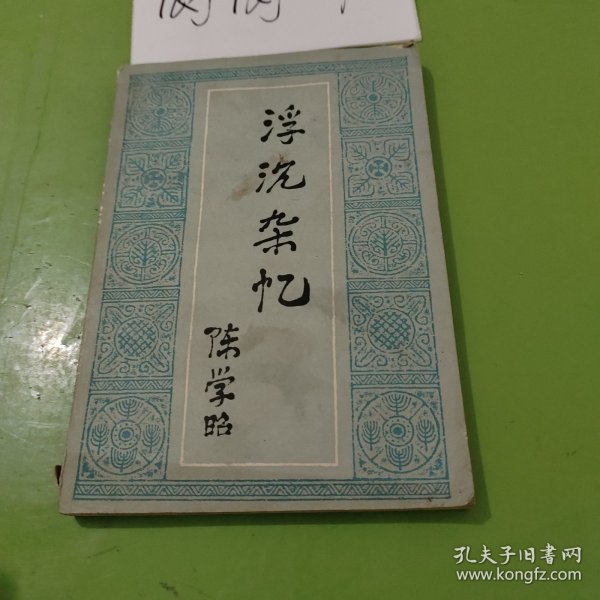 浮沉杂忆
陈学昭
孔夫子旧書网
www.kongfz.com